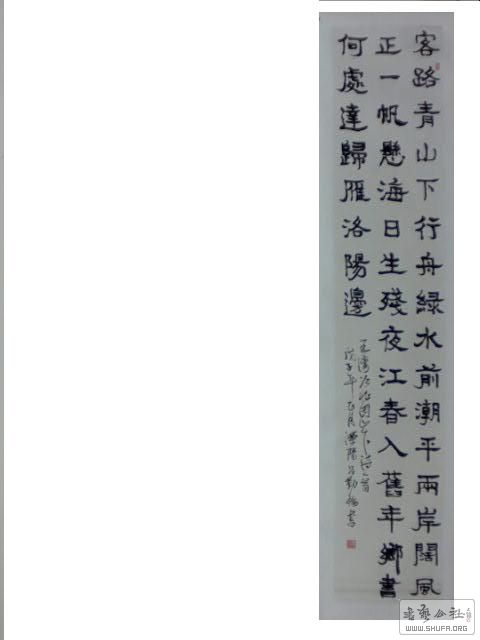 客路青山下行舟綠水前潮平兩岸闊風
正一帆懸海日生殘夜江春入舊年鄉書
何處達歸雁洛陽邊
王灣次北固山下詩一首
戊子年
WWW.SHUFA.ORG